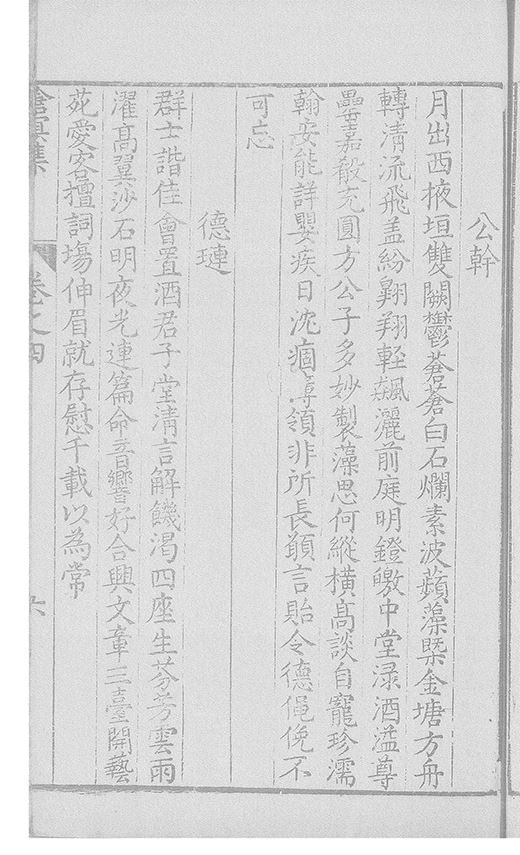 公幹
月出西掖垣雙闕鬱蒼蒼白石爛素波蘋藻槩金塘方舟
轉清流飛盖紛翺翔輕飆灑前庭明鐙皦中堂淥酒溢尊
罍嘉殽充圓方公子多妙製藻思何縱橫髙談自寵珍濡
翰安能詳嬰疾日沈痼專領非所長顧言貽令德僶俛不
可忘
德璉
群士諧佳會置酒君子堂清言解饑渴四座生芬芳雲雨
濯髙翼沙石明夜光連篇命音響好合興文章三臺開藝
苑愛客擅詞塲伸眉就存慰千載以為常
滄㝠集
卷之四
六